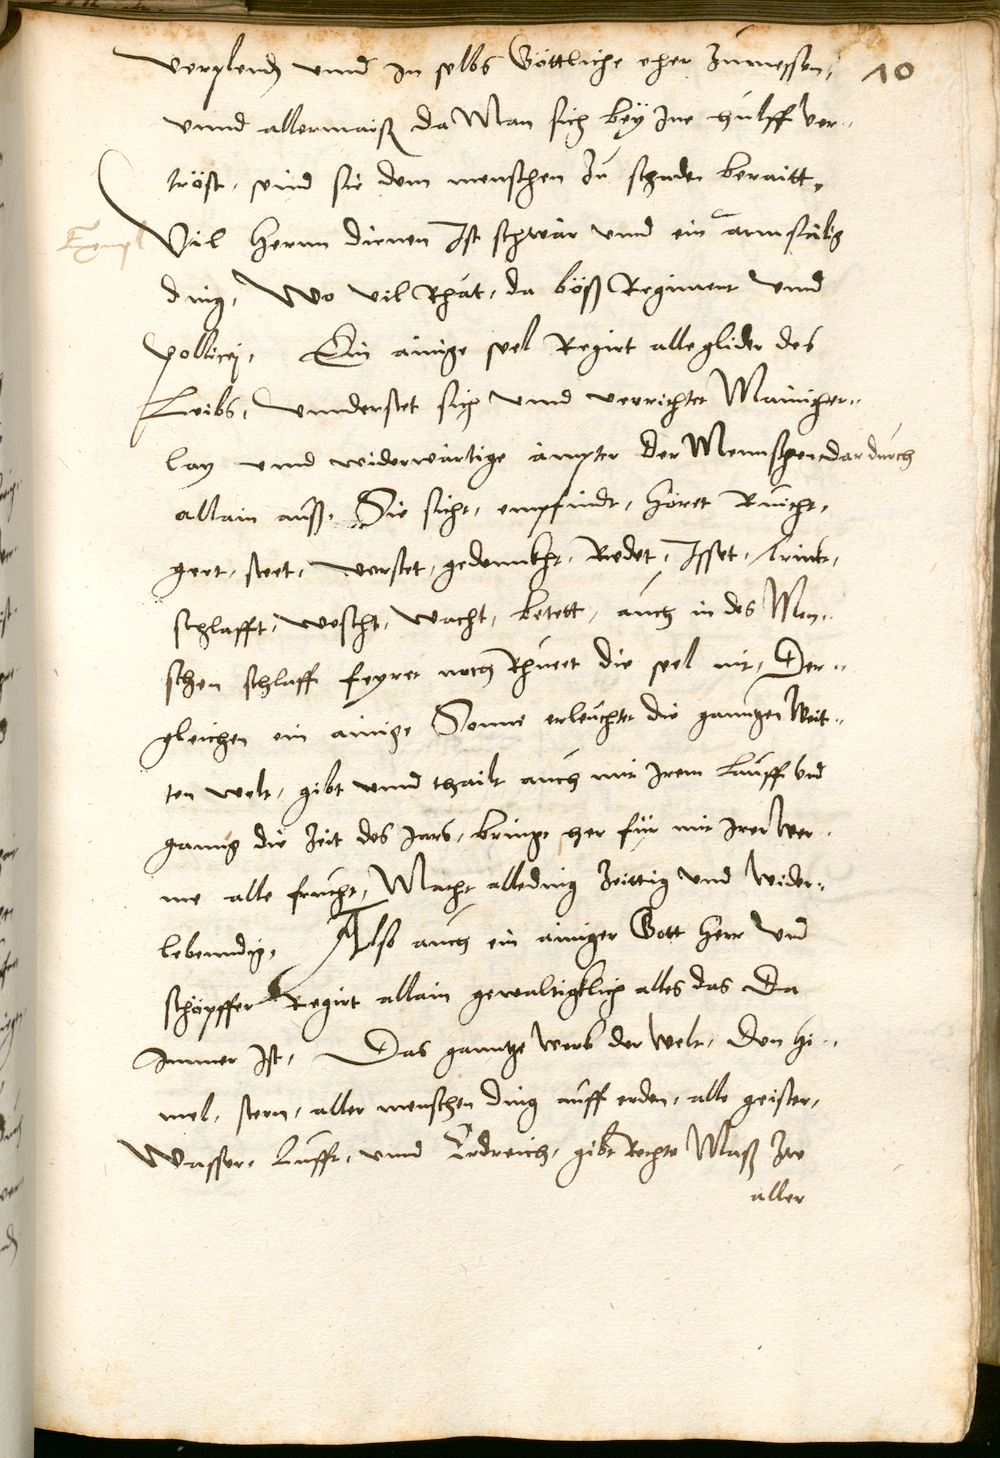 verplendt vnnd In selbs Göttliche eher Zumessen, 10
vnnd allermaiß da Man sich beÿ Ine hülff ver-
tröst, seind sie dem menschen Zu schaden beraitt,
Exempl Vil Herrn dienen Ist schwär vnnd ein armsälig
ding, Wo vil Rhät, da böß Regiment vnnd
pollicej, Ein ainige seel Regirt alle glider des
Leibs, vnnderstet sich vnnd verrichtet Mainicher-
lay vnnd widerwärtige ämpter der Mennschen dardurch
allain auß, Sie sicht, empfindt, höret Reücht,
geet, steet, verstet, gedennkht, Redet, Isset, trinkt,
schlafft, wischt, wacht, betett, auch in des Men-
schen schlaff feyret noch Rhueet die seel nit, Der-
gleichen ein ainige Sonne erleüchtet die ganntzen Weit-
ten welt, gibt vnnd thailt auch mit Irem Lauff vnd
ganng die Zeit des Jars, bringt herfür mit Irer Wer-
me alle frücht, Macht alleding Zeittig vnd Wider-
lebenndig, Also auch ein ainiger Gott Herr vnd
schöpffer Regirt allain gewaltigklich alles das Da
Immer Ist, Das ganntze Werk der Welt, Den Hi-
mel, stern, aller menschen ding auff erden, alle geister,
Wasser, Lufft, vnnd Erdreich, gibt Rechte Maß Ire
aller